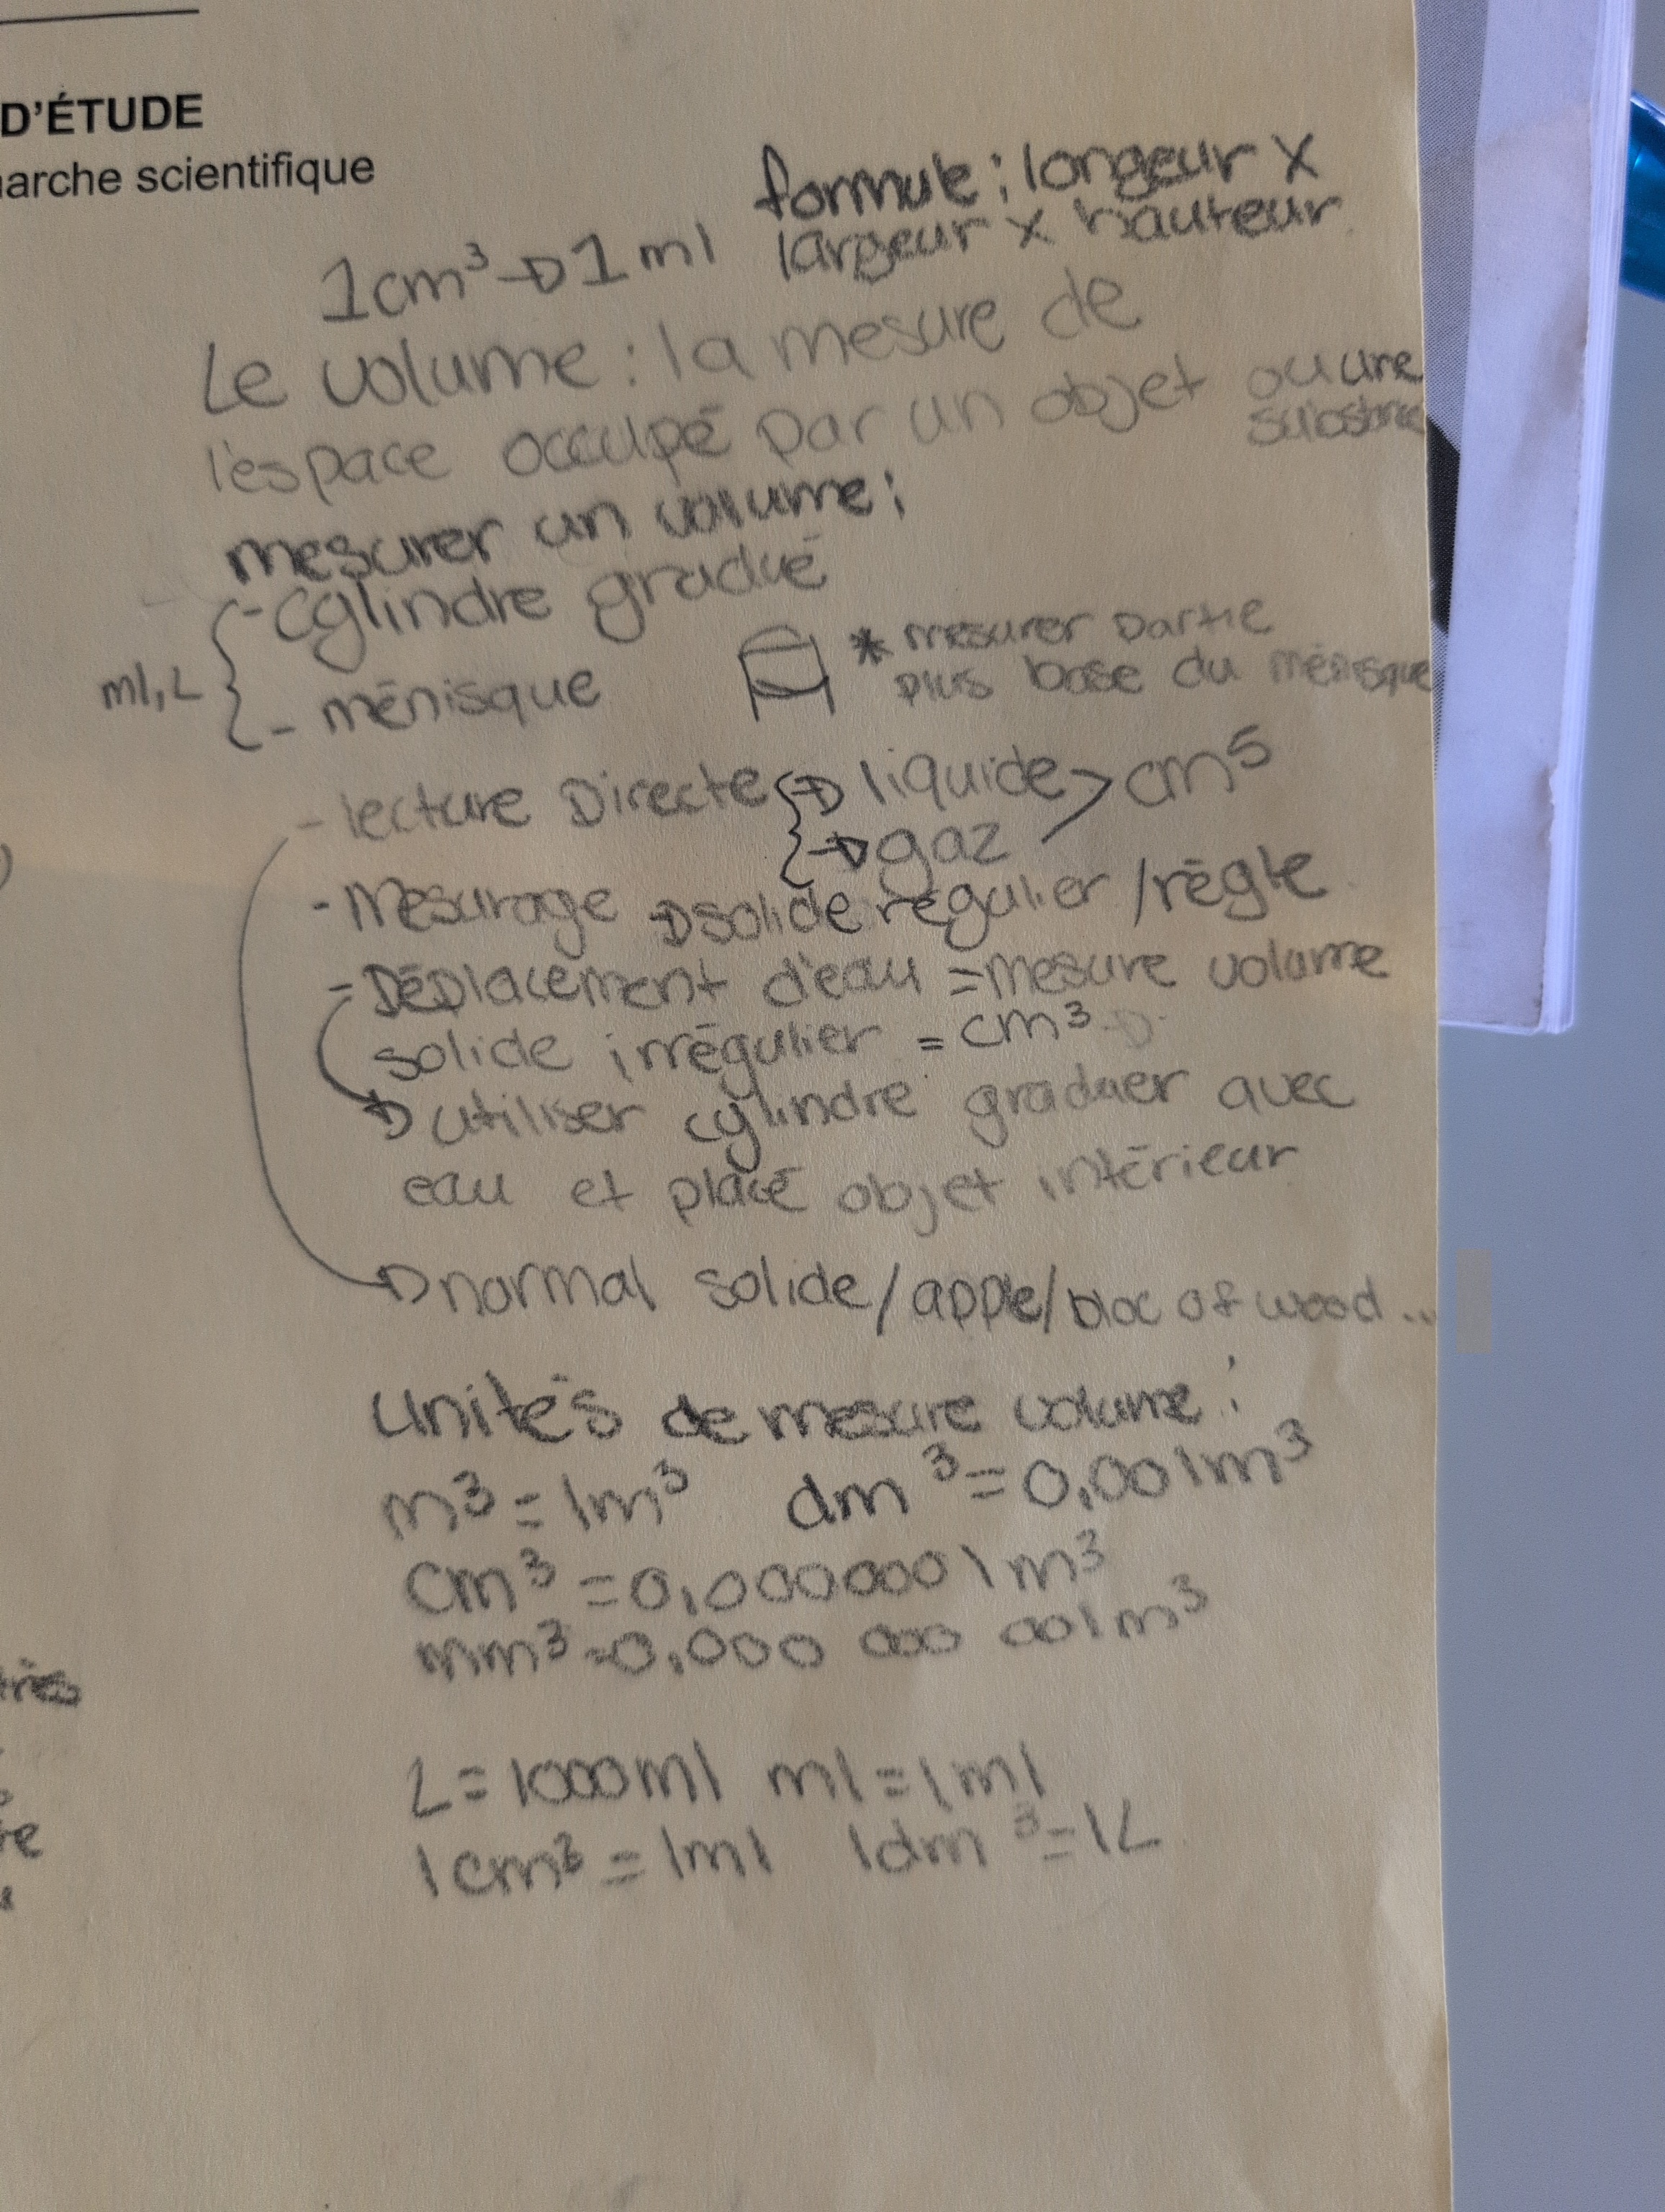 D'ÉTUDE
arche scientifique
formule : longeur x
largeur x hauteur
1cm³ → 1 ml
Le volume : la mesure de
l'espace occupé par un objet ou une
mesurer un volume :
- cylindre gradué
ml, L
- ménisque
* mesurer partie
plus base du ménisque
- lecture Directe → liquide > cm⁵
→ gaz
- Mesurage → solide régulier / règle
- Déplacement d'eau = mesure volume
solide irrégulier = cm³
→ utiliser cylindre graduer avec
eau et placé objet intérieur
→ normal solide / apple / bloc of wood ...
unités de mesure volume :
m³ = 1m³ dm³ = 0,001m³
cm³ = 0,0000001m³
mm³ = 0,000 000 001m³
L = 1000ml ml = 1ml
1cm³ = 1ml 1dm³ = 1L